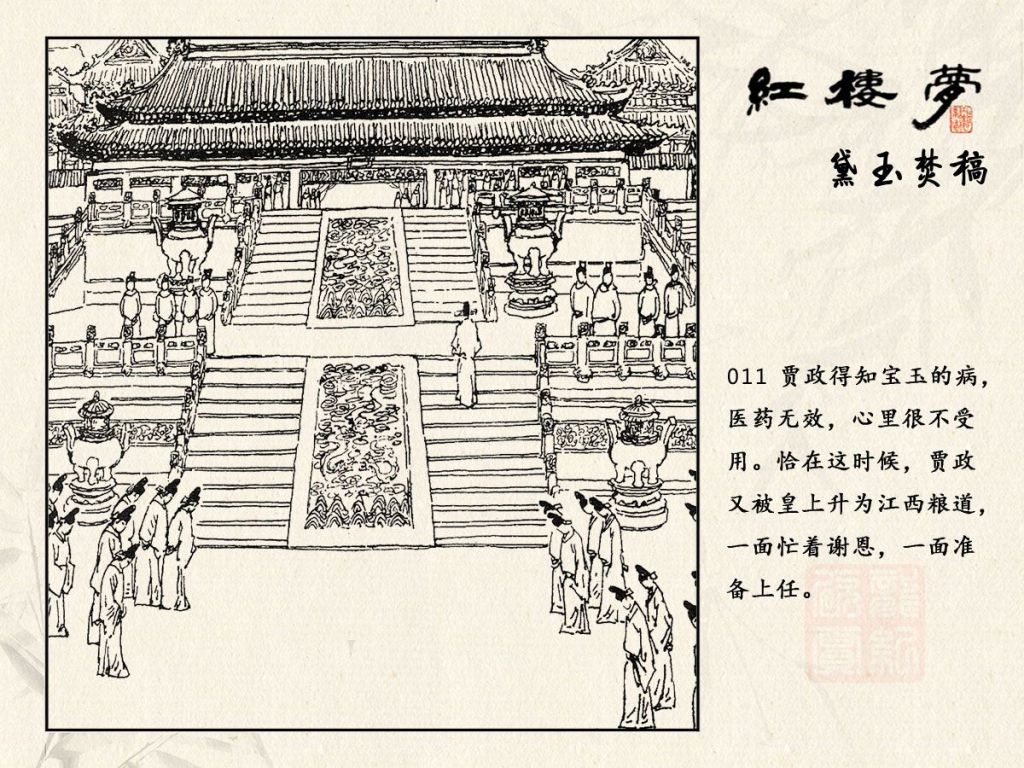 紅樓夢
黛玉焚稿
011 贾政得知宝玉的病，
医药无效，心里很不受
用。恰在这时候，贾政
又被皇上升为江西粮道，
一面忙着谢恩，一面准
备上任。